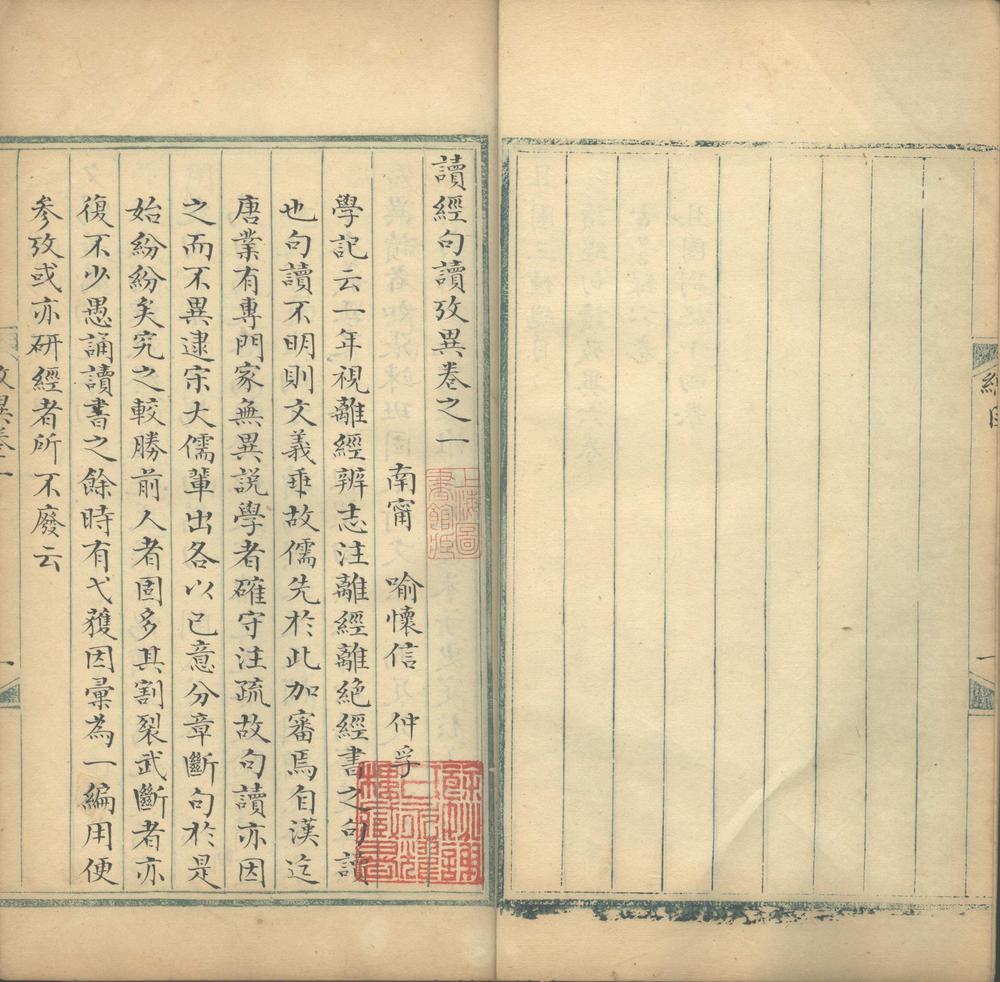 讀經句讀攷異卷之一
南甯 喻懷信 仲孚
學記云一年視離經辨志注離經離絶經書之句讀
也句讀不明則文義乖故儒先於此加審焉自漢迄
唐業有專門家無異説學者確守注疏故句讀亦因
之而不異逮宋大儒輩出各以已意分章斷句於是
始紛紛矣究之較勝前人者固多其割裂武斷者亦
復不少愚誦讀書之餘時有弋獲因彙為一編用便
參攷或亦研經者所不廢云
上海圖
書館藏
攷異卷一
一